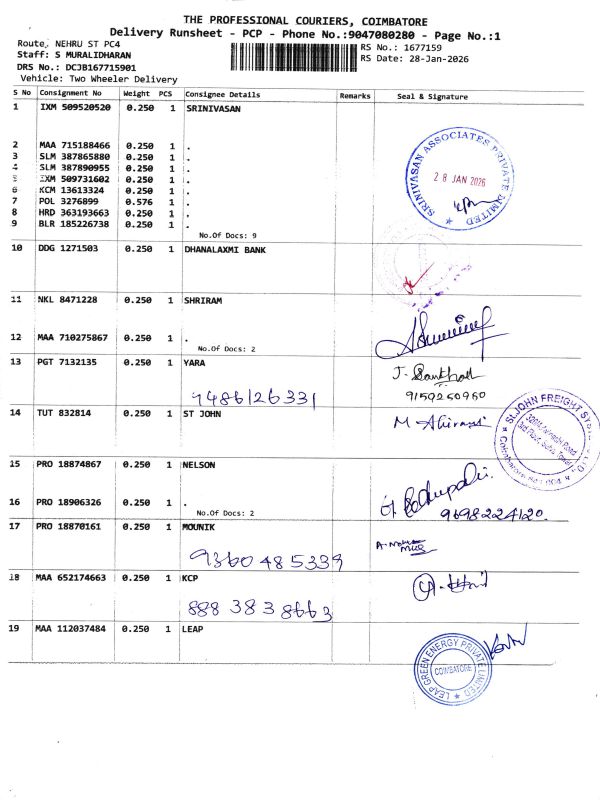 THE PROFESSIONAL COURIERS, COIMBATORE
Delivery Runsheet - PCP - Phone No.:9047080280 - Page No.:1
Route. NEHRU ST PC4
RS No.: 1677159
Staff: S MURALIDHARAN
RS Date: 28-Jan-2026
DRS No.: DCJB167715901
Vehicle: Two Wheeler Delivery
S No Consignment No Weight PCS Consignee Details Remarks Seal & Signature
1 IXM 509520520 0.250 1 SRINIVASAN
2 MAA 715188466 0.250 1 .
3 SLM 387865880 0.250 1 .
4 SLM 387890955 0.250 1 .
5 IXM 509731602 0.250 1 .
6 KCM 13613324 0.250 1 .
7 POL 3276899 0.576 1 .
8 HRD 363193663 0.250 1 .
9 BLR 185226738 0.250 1 .
No.Of Docs: 9
SRINIVASAN ASSOCIATES PRIVATE LIMITED
28 JAN 2026
10 DDG 1271503 0.250 1 DHANALAXMI BANK
11 NKL 8471228 0.250 1 SHRIRAM
12 MAA 710275867 0.250 1 .
No.Of Docs: 2
13 PGT 7132135 0.250 1 YARA
J.
9486126331
9159260960
14 TUT 832814 0.250 1 ST JOHN
M
ST.JOHN FREIGHT
15 PRO 18874867 0.250 1 NELSON
16 PRO 18906326 0.250 1 .
No.Of Docs: 2
9698224120.
17 PRO 18870161 0.250 1 MOUNIK
9360485339
18 MAA 652174663 0.250 1 KCP
888 383 8663
19 MAA 112037484 0.250 1 LEAP
LEAP GREEN ENERGY PRIVATE LIMITED
COIMBATORE